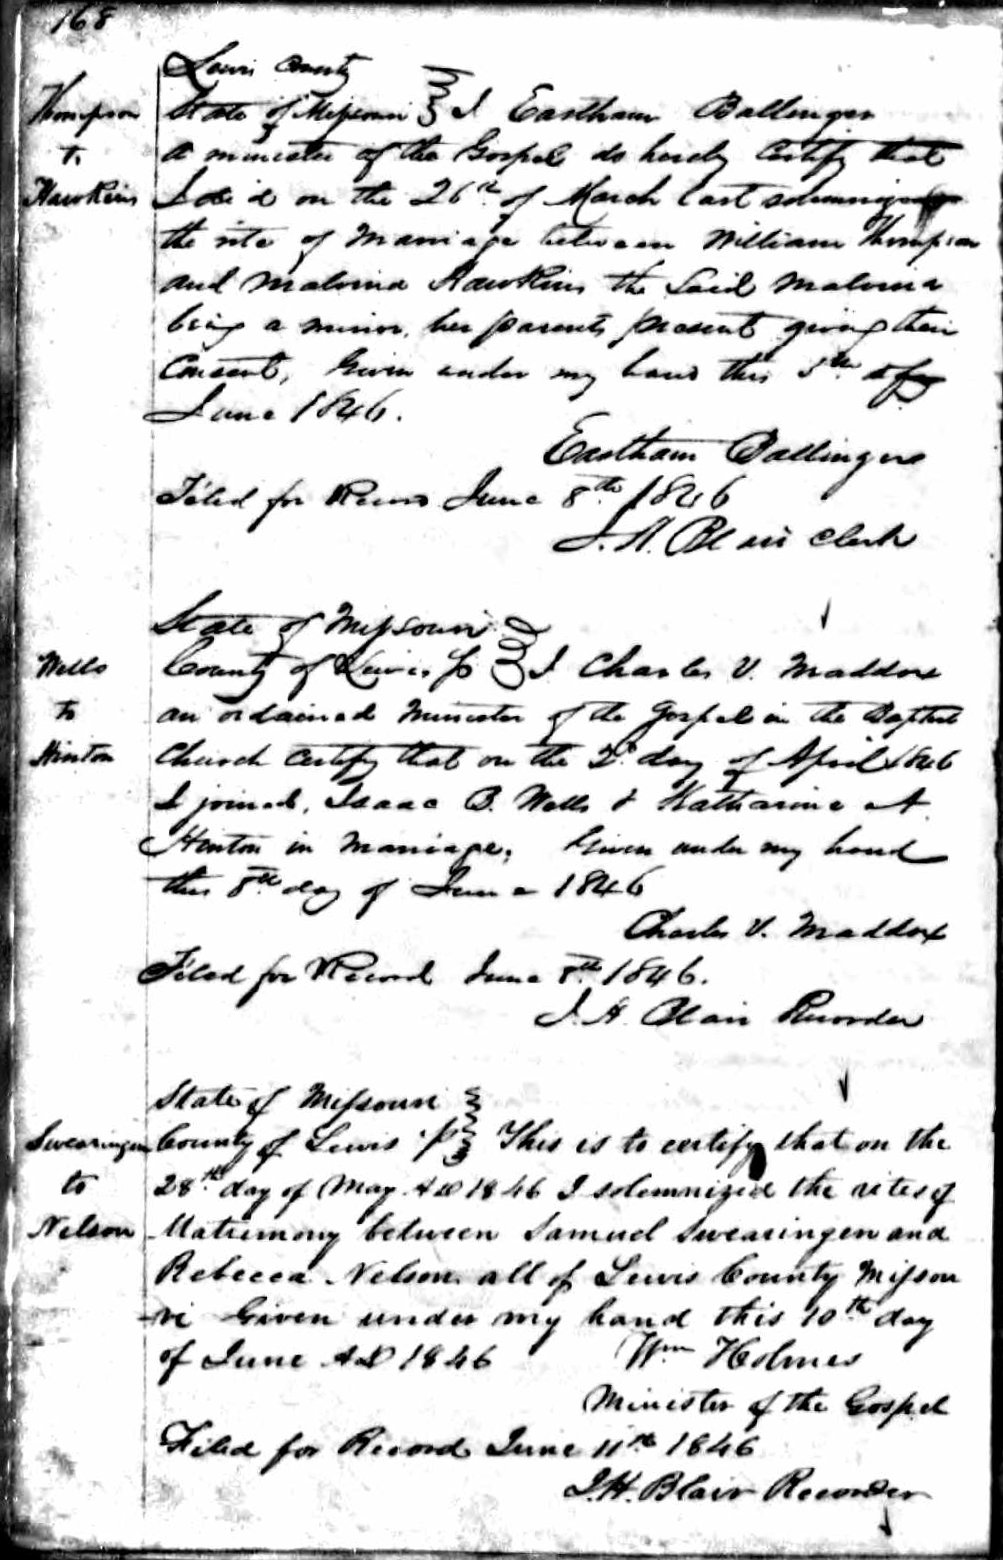 168
Lewis County
Thompson State of Missouri } I Eastham Ballinger
to a minister of the Gospel do hereby certify that
Hawkins I did on the 26th of March last solemnize
the rite of Marriage between William Thompson
and Malvina Hawkins the Said Malvina
being a minor, her parents present giving their
Consent, Given under my hand this 5th of
June 1846.
Eastham Ballinger
Filed for Record June 8th 1846
J. H. Blair Clerk
State of Missouri }
Wells County of Lewis ss } I Charles V. Maddox
to an ordained Minister of the Gospel in the Baptist
Hinton Church certify that on the 2d day of April 1846
I joined, Isaac B. Wells & Katharine A
Hinton in Marriage, Given under my hand
this 8th day of June 1846
Charles V. Maddox
Filed for Record June 8th 1846.
J. H. Blair Recorder
State of Missouri }
Swearingen County of Lewis ss } This is to certify that on the
to 28th day of May AD 1846 I solemnized the rites of
Nelson Matrimony between Samuel Swearingen and
Rebecca Nelson all of Lewis County Missou
ri Given under my hand this 10th day
of June AD 1846 Wm Holmes
Minister of the Gospel
Filed for Record June 11th 1846
J. H. Blair Recorder